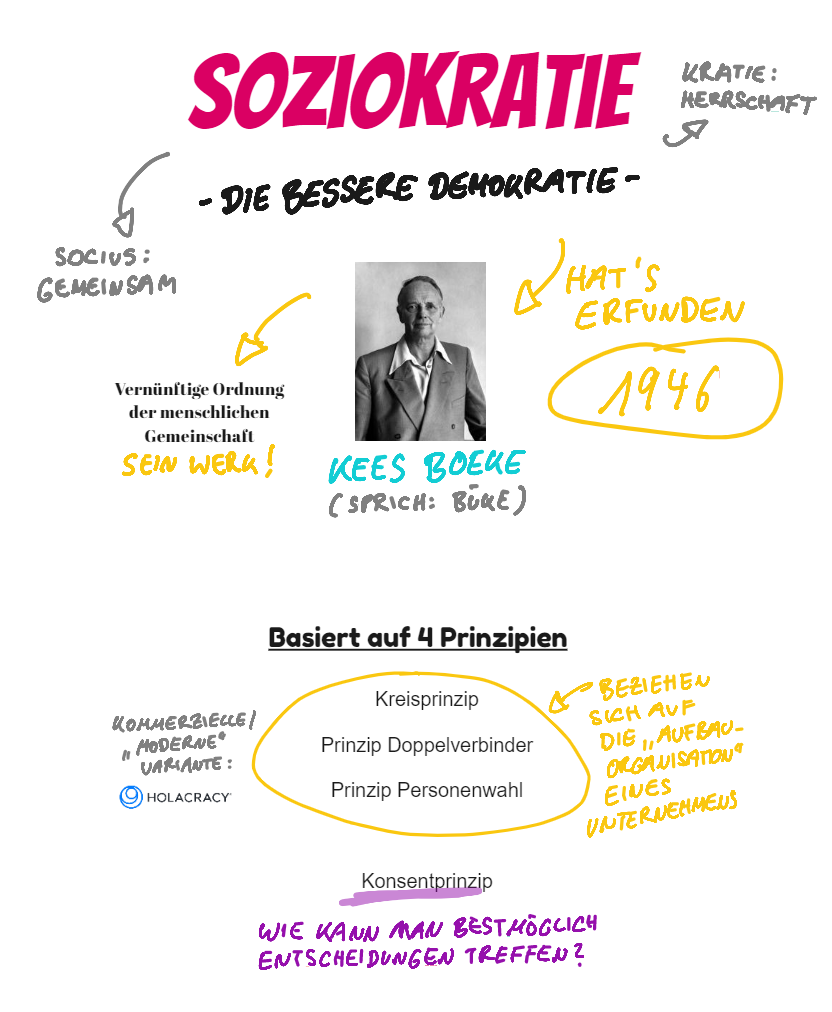 SOZIOKRATIE
KRATIE:
HERRSCHAFT
- DIE BESSERE DEMOKRATIE -
SOCIUS:
GEMEINSAM
HAT'S
ERFUNDEN
1946
Vernünftige Ordnung
der menschlichen
Gemeinschaft
SEIN WERK!
KEES BOEKE
(SPRICH: BÜKE)
Basiert auf 4 Prinzipien
Kreisprinzip
Prinzip Doppelverbinder
Prinzip Personenwahl
KOMMERZIELLE/
„MODERNE"
VARIANTE:
HOLACRACY
BEZIEHEN
SICH AUF
DIE „AUFBAU-
ORGANISATION"
EINES
UNTERNEHMENS
Konsentprinzip
WIE KANN MAN BESTMÖGLICH
ENTSCHEIDUNGEN TREFFEN?